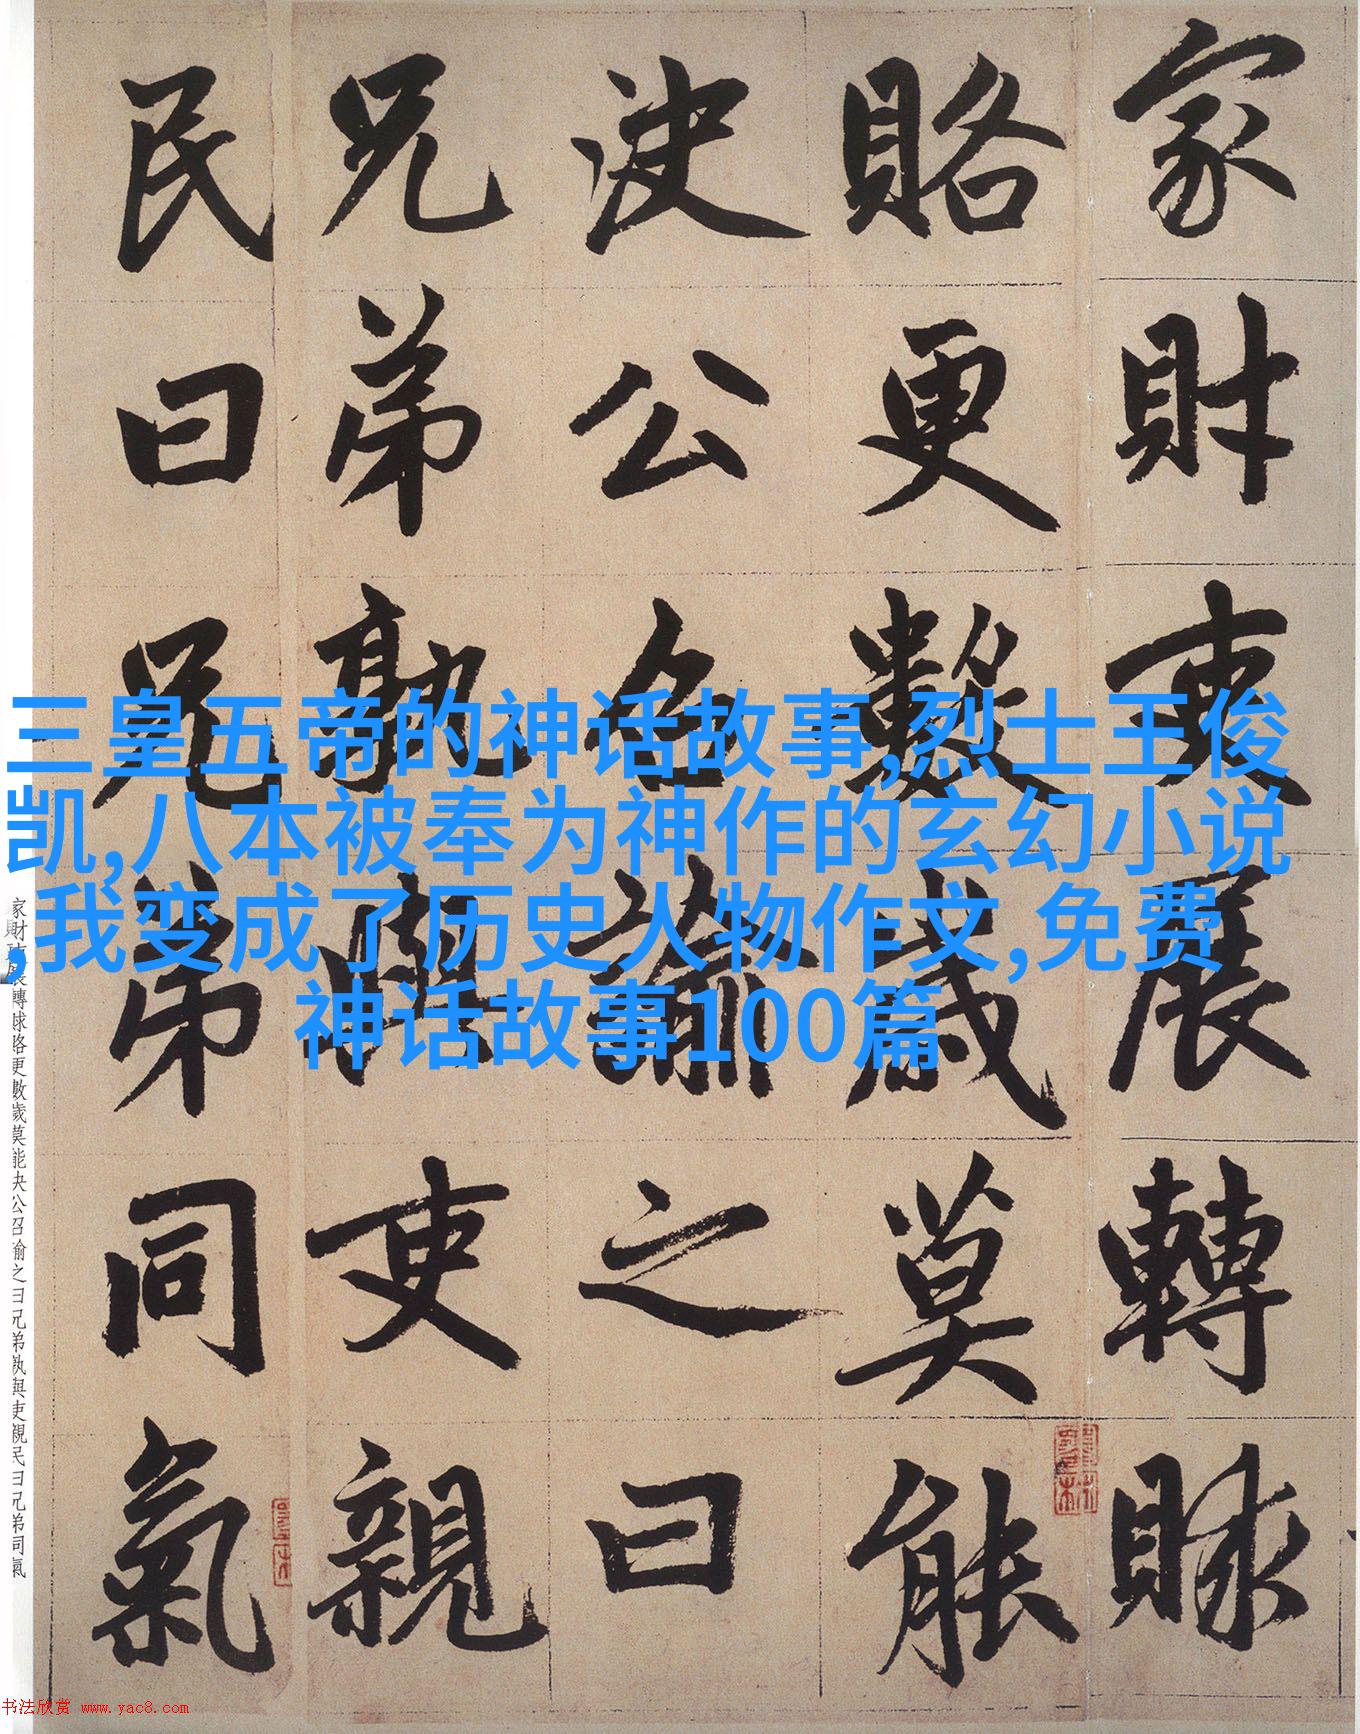 家財吏展轉賕
賂更數歲莫能
決公召諭之曰
兄弟孰與吏親
民曰兄弟同氣
三皇五帝的神话故事,烈士王俊
凯,八本被奉为神作的玄幻小说
,我变成了历史人物作文,免费
神话故事100篇
家財吏展轉賕賂更數歲莫能決公召諭之曰兄弟孰與吏親民曰兄弟同氣
书法欣赏 www.yac8.com